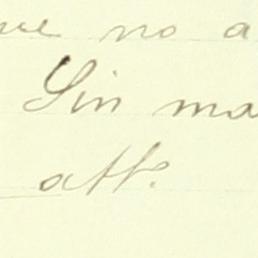 ue no a
Sin ma
att.